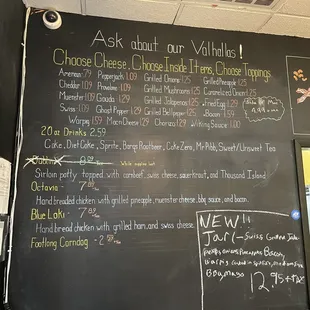 Ask about our Valhallas!
Choose Cheese, Choose Inside Items, Choose Toppings
American 1.09 Pepperjack 1.09 Grilled Onions 1.25 Grilled Pineapple 1.25
Cheddar 1.09 Provolone 1.09 Grilled Mushrooms 1.25 Caramelized Onion 1.25
Muenster 1.09 Gouda 1.29 Grilled Jalapenos 1.25 Fried Egg 1.29
Swiss 1.09 Ghost Pepper 1.29 Grilled Bellpepper 1.25 Bacon
Mac n Cheese Chorizo Viking Sauce 1.00
20oz Drinks 2.59
Coke, Diet Coke, Sprite, Barqs Rootbeer, Coke Zero, Mr. Pibb, Sweet/Unsweet Tea
While supplies last
Sirloin patty topped with cornbeef, swiss cheese, sauerkraut, and Thousand Island
Octavia - 7
Hand breaded chicken with grilled pineapple, muenster cheese, bbq sauce, and bacon.
Blue Loki - 7
Hand bread chicken with grilled ham, and swiss cheese
Footlong Corndog - 2
NEW!!!
Jarl - Swiss, Grilled
onions, Pineapples, Bacon
Mayo 12.95+tax